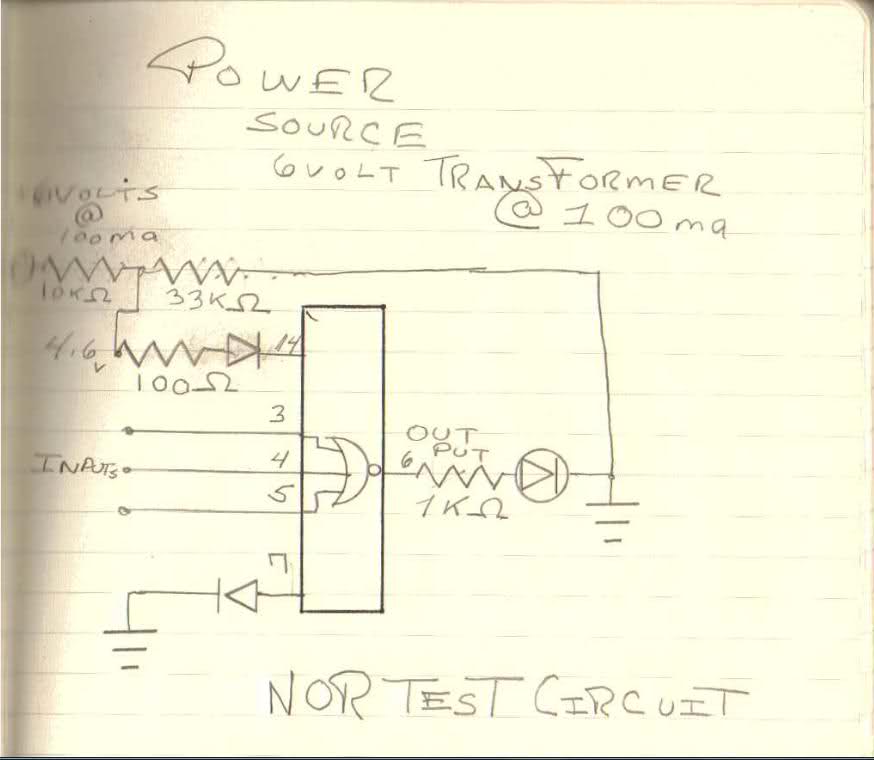 POWER
SOURCE
6VOLT TRANSFORMER
@ 100ma
VOLTS
@
100ma
10KΩ
33KΩ
4.6
v
100Ω
14
3
INPUTS
4
5
7
OUT
PUT
6
1KΩ
NOR TEST CIRCUIT